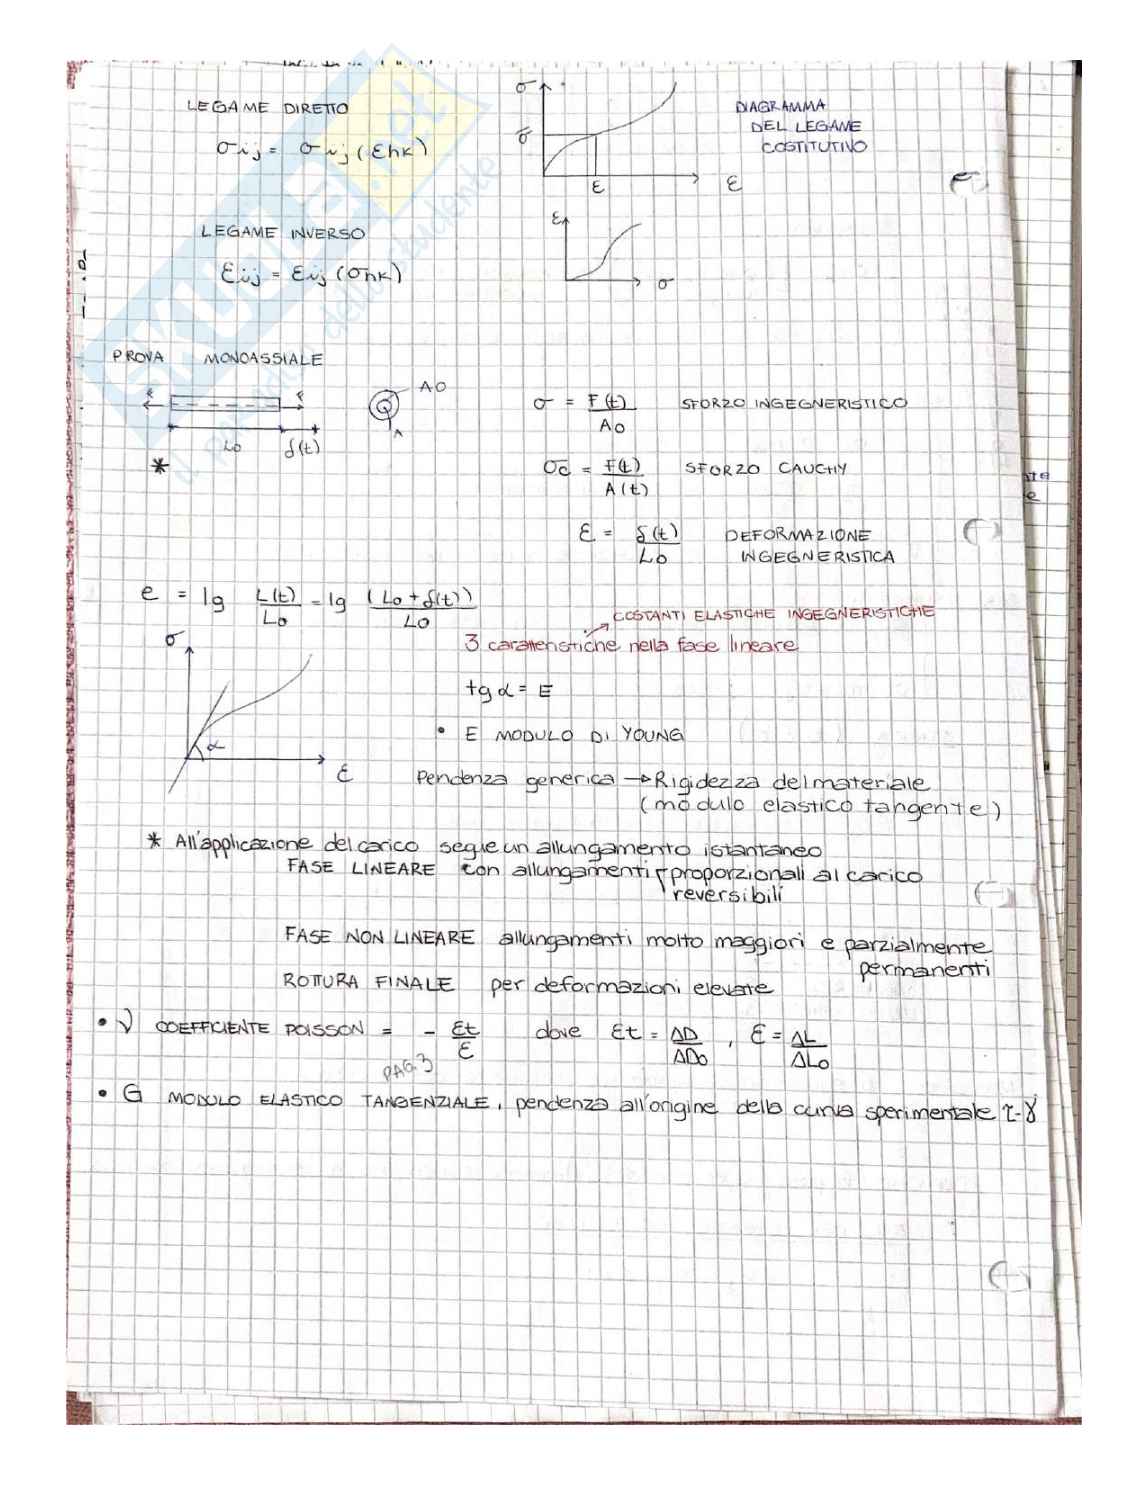 LEGAME DIRETTO
σij = σij (εhk)
σ
σ̄
ε
ε
DIAGRAMMA
DEL LEGAME
COSTITUTIVO
LEGAME INVERSO
εij = εij (σhk)
ε
σ
SKUOLA.net
il paradiso dello studente
PROVA MONOASSIALE
L0 δ(t)
A0
A
*
σ = F(t)/A0 SFORZO INGEGNERISTICO
σc = F(t)/A(t) SFORZO CAUCHY
ε = δ(t)/L0 DEFORMAZIONE
INGEGNERISTICA
e = lg L(t)/L0 = lg (L0+δ(t))/L0
COSTANTI ELASTICHE INGEGNERISTICHE
3 caratteristiche nella fase lineare
σ
α
ε
tg α = E
• E MODULO DI YOUNG
Pendenza generica → Rigidezza del materiale
(modulo elastico tangente)
* All'applicazione del carico segue un allungamento istantaneo
FASE LINEARE con allungamenti proporzionali al carico
reversibili
FASE NON LINEARE allungamenti molto maggiori e parzialmente
permanenti
ROTTURA FINALE per deformazioni elevate
• ν COEFFICIENTE POISSON = - εt/ε dove εt = ΔD/ΔD0 , ε = ΔL/ΔL0
PAG.3
• G MODULO ELASTICO TANGENZIALE, pendenza all'origine della curva sperimentale τ-γ